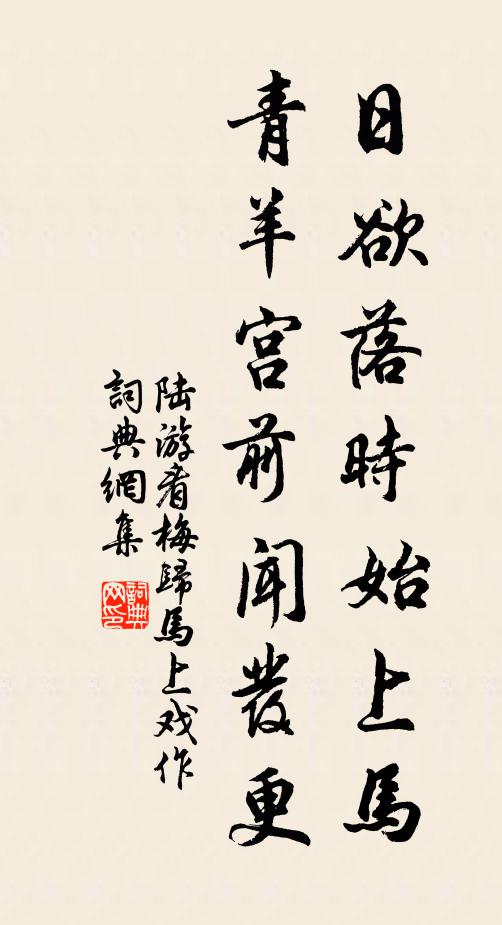 日欲落時始上馬
青羊宮前聞發更
陆游看梅歸馬上戏作
詞典網集
詞典網印